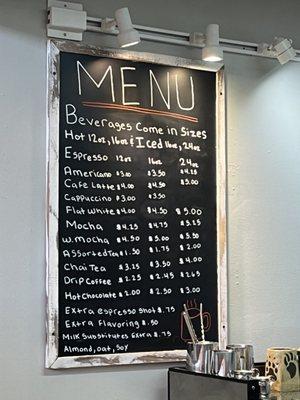 MENU
Beverages Come in Sizes
Hot 12oz, 16oz & Iced 16oz, 24oz
Espresso 12oz 16oz 24oz
Americano $3.00 $3.50 $4.25
Cafe Latte $4.00 $4.50 $5.00
Cappuccino $3.00 $3.50
Flat White $4.00 $4.50 $5.00
Mocha $4.25 $4.75 $5.25
W. Mocha $4.50 $5.00 $5.50
Assorted Tea $1.50 $1.75 $2.00
Chai Tea $3.25 $3.50 $4.00
Drip Coffee $2.25 $2.45 $2.65
Hot Chocolate $2.00 $2.50 $3.00
Extra Espresso Shot $.75
Extra Flavoring $.50
Milk Substitutes Extra $.75
Almond, oat, soy